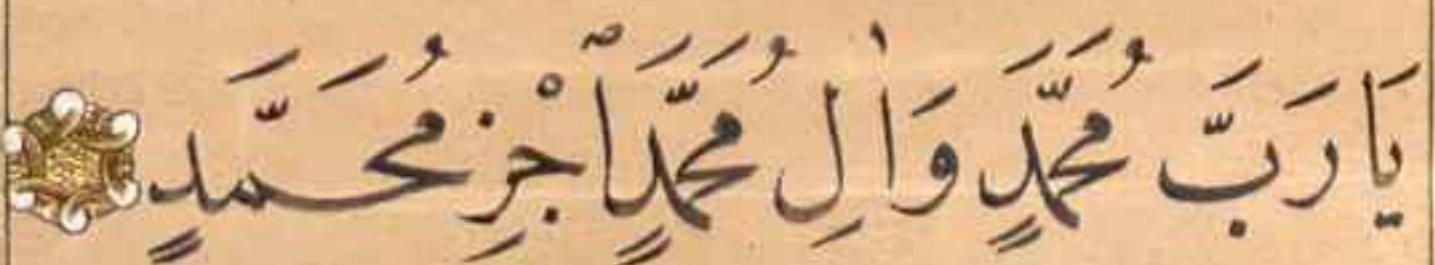 يَا رَبَّ مُحَمَّدٍ وَاٰلِ مُحَمَّدٍ اَجْزِ مُحَمَّدٍ